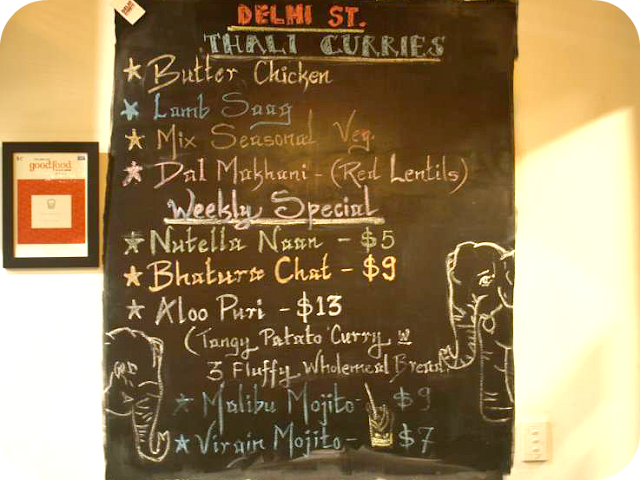 DELHI ST.
THALI CURRIES
Butter Chicken
Lamb Saag
Mix Seasonal Veg.
Dal Makhani - (Red Lentils)
Weekly Special
Nutella Naan - $5
Bhatura Chat - $9
Aloo Puri - $13
(Tangy Patato Curry w
3 Fluffy Wholemeal Bread
Malibu Mojito - $9
Virgin Mojito - $7
good food